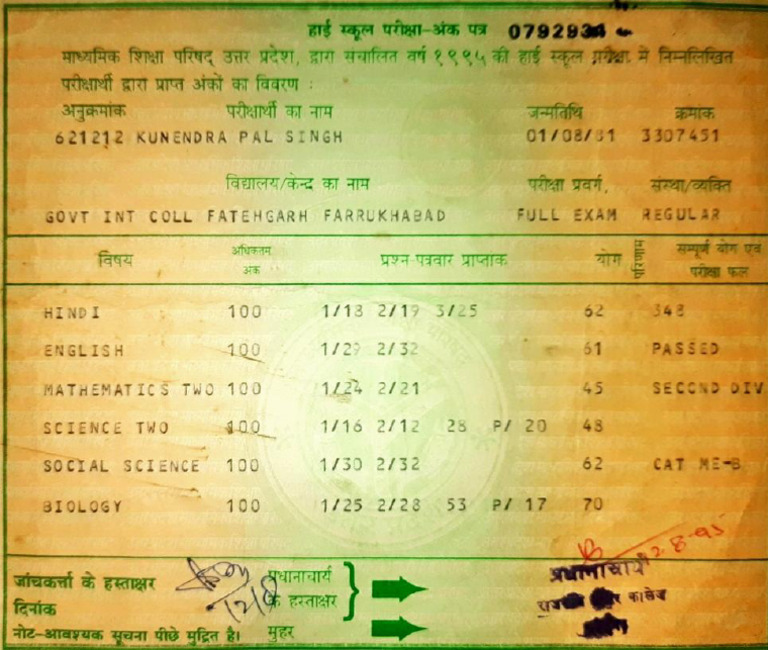 हाई स्कूल परीक्षा-अंक पत्र 0792934
माध्यमिक शिक्षा परिषद् उत्तर प्रदेश, द्वारा संचालित वर्ष १९९५ की हाई स्कूल परीक्षा में निम्नलिखित
परीक्षार्थी द्वारा प्राप्त अंकों का विवरण :
अनुक्रमांक परीक्षार्थी का नाम जन्मतिथि क्रमांक
621212 KUNENDRA PAL SINGH 01/08/81 3307451
विद्यालय/केन्द्र का नाम परीक्षा प्रवर्ग, संस्था/व्यक्ति
GOVT INT COLL FATEHGARH FARRUKHABAD FULL EXAM REGULAR
विषय अधिकतम अंक प्रश्न-पत्रवार प्राप्तांक योग परिणाम सम्पूर्ण योग एवं परीक्षा फल
HINDI 100 1/18 2/19 3/25 62 348
ENGLISH 100 1/29 2/32 61 PASSED
MATHEMATICS TWO 100 1/24 2/21 45 SECOND DIV
SCIENCE TWO 100 1/16 2/12 28 P/ 20 48
SOCIAL SCIENCE 100 1/30 2/32 62 CAT ME-B
BIOLOGY 100 1/25 2/28 53 P/ 17 70
जांचकर्त्ता के हस्ताक्षर प्रधानाचार्य के हस्ताक्षर प्रधानाचार्य
दिनांक कालेज
नोट-आवश्यक सूचना पीछे मुद्रित है। मुहर